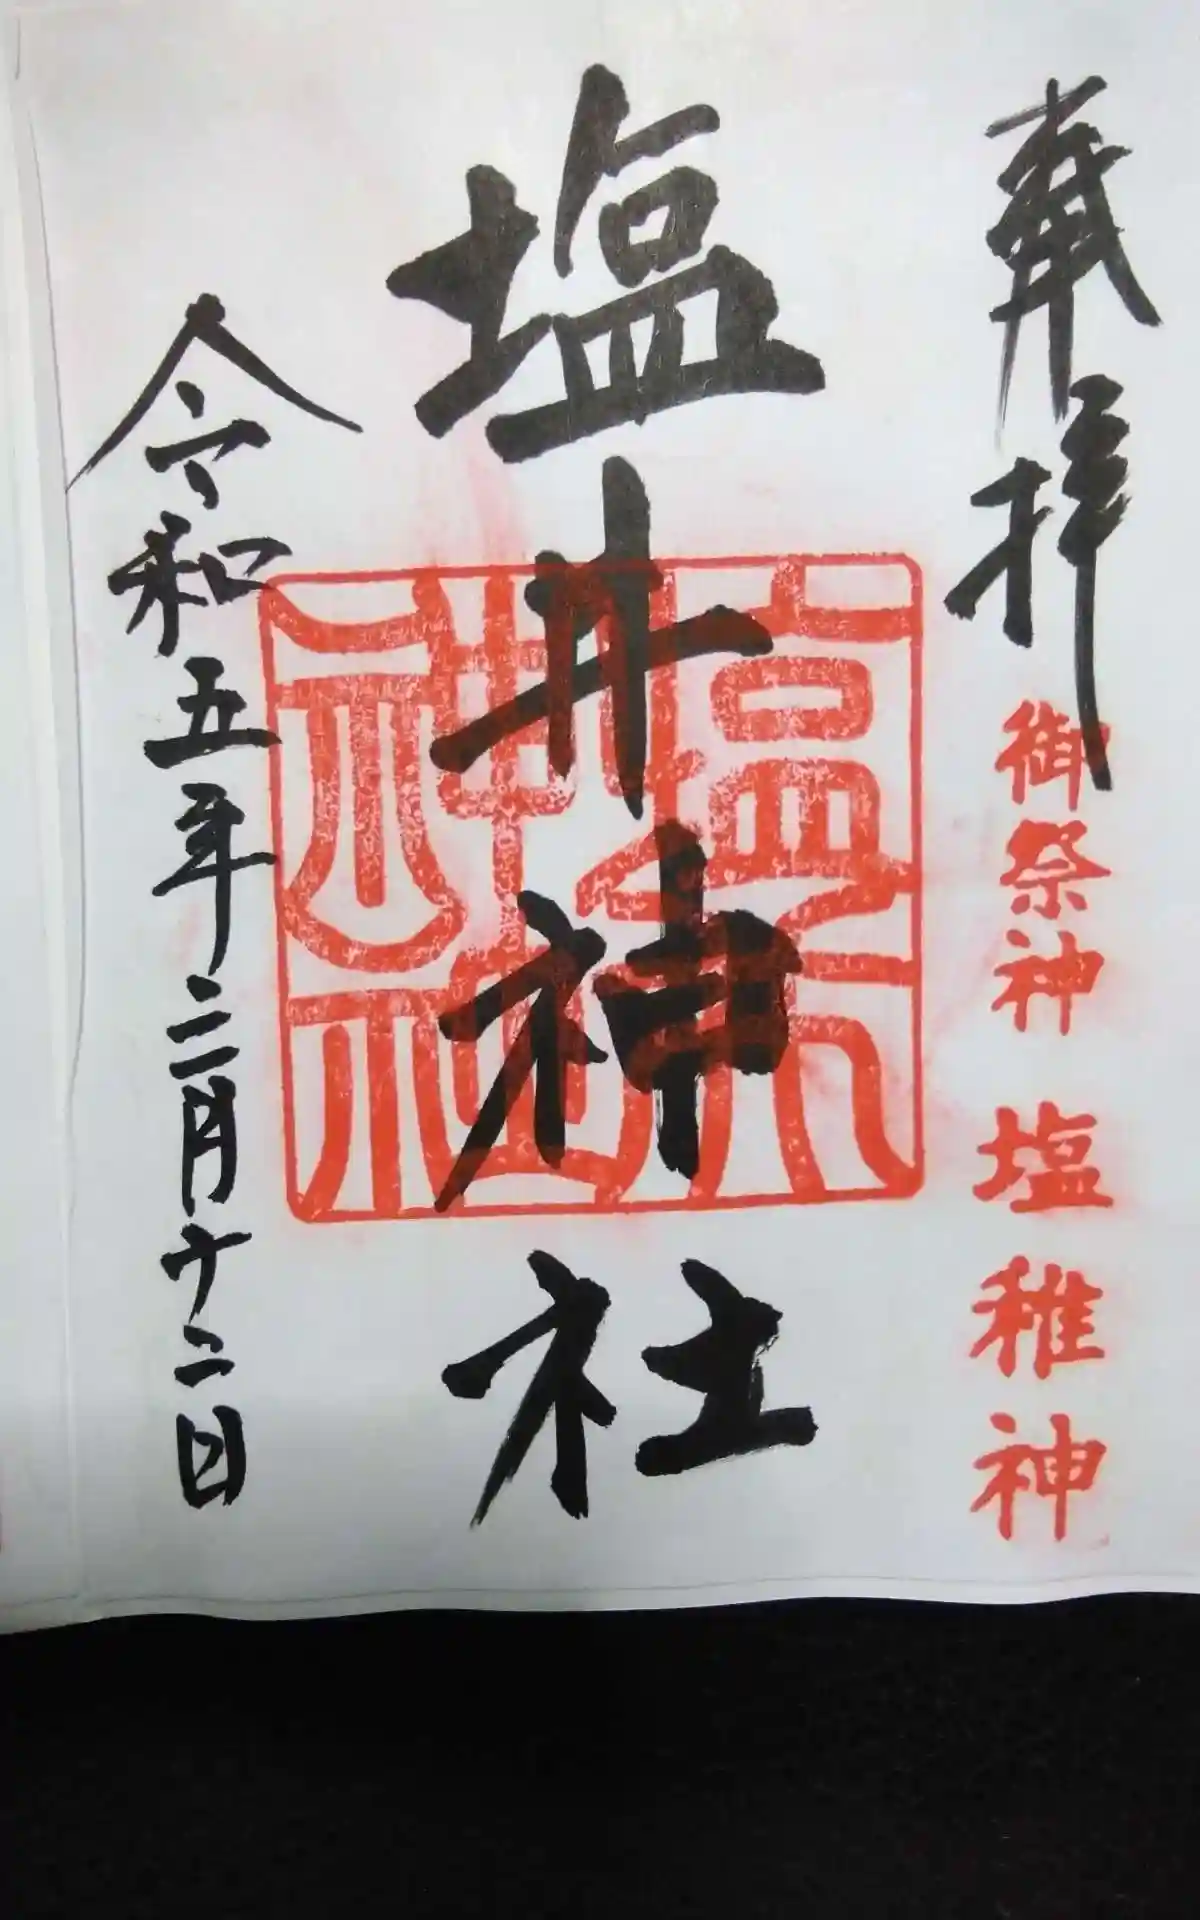 奉拝
御祭神 塩稚神
塩井神社
令和五年三月十二日